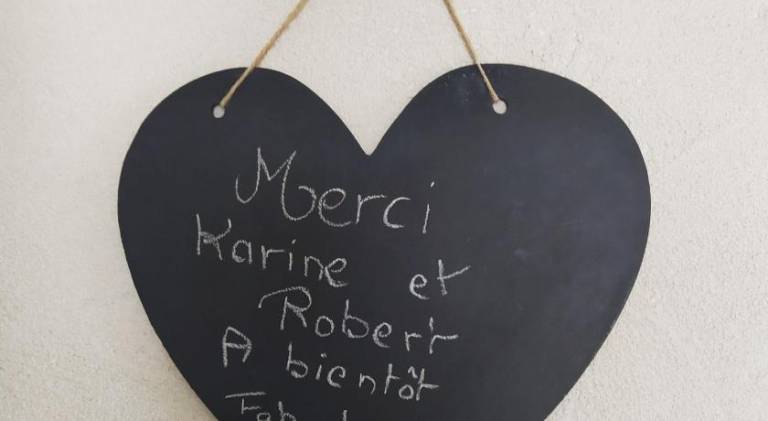 Merci
Karine et
Robert
A bientôt